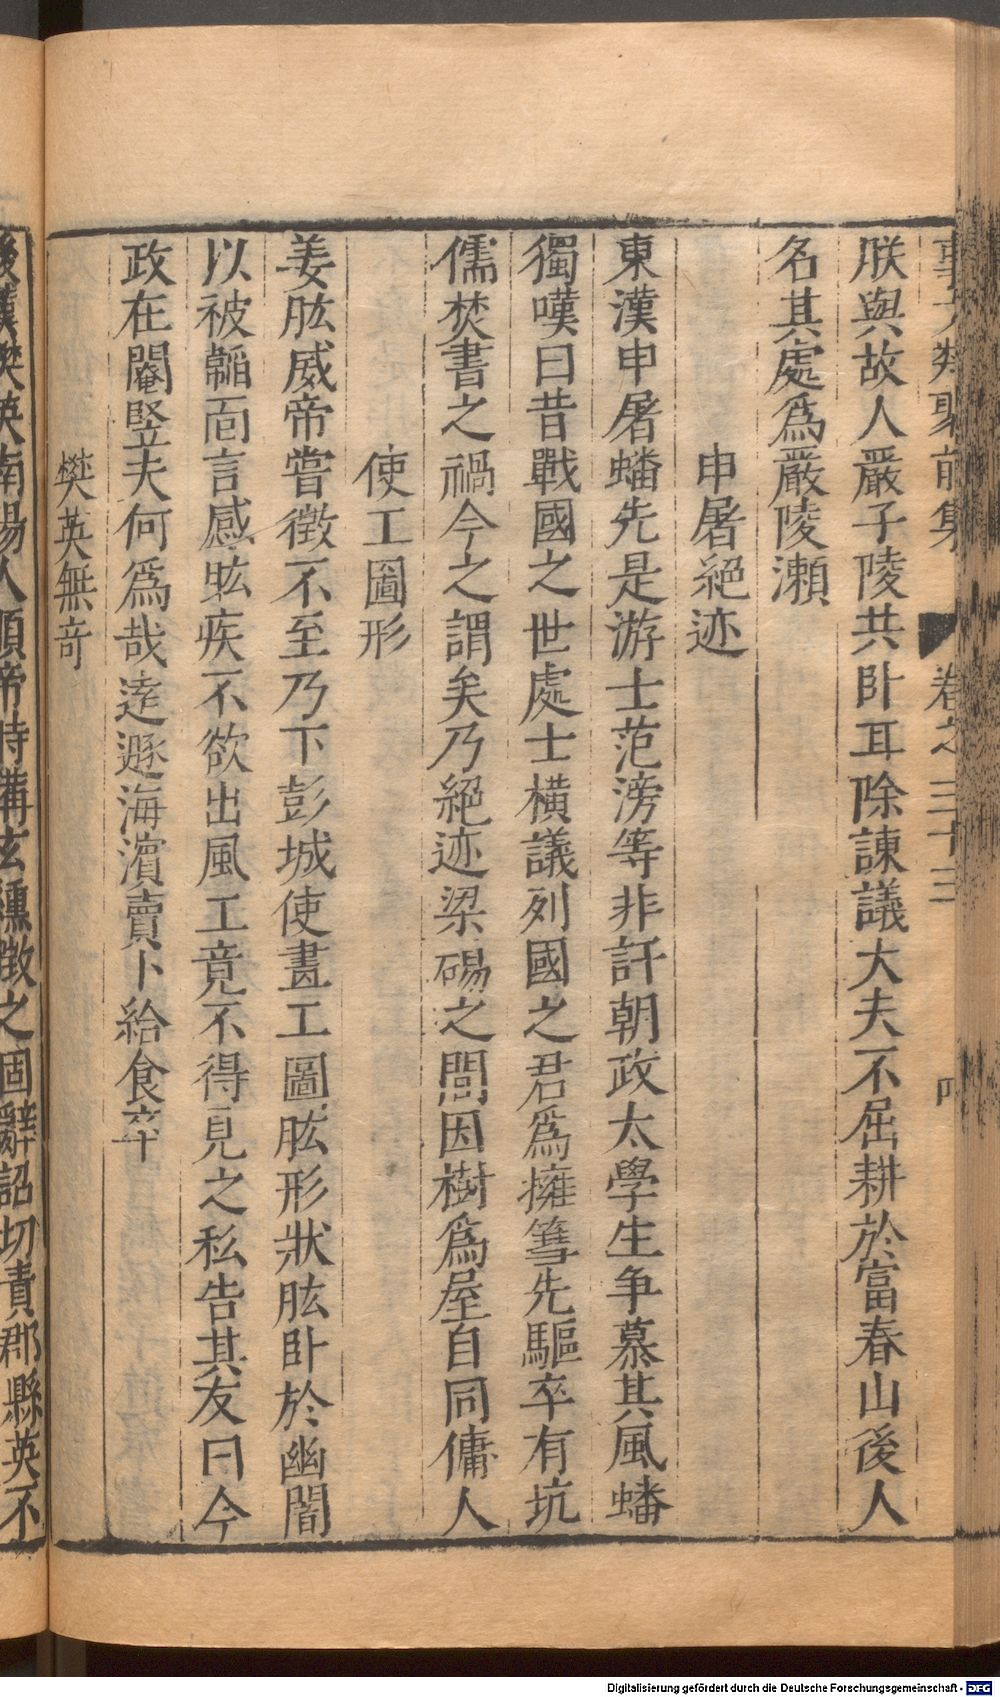 事文類聚前集 卷之三十三 四
朕與故人嚴子陵共卧耳除諫議大夫不屈耕於富春山後人
名其處爲嚴陵瀬
申屠絕迹
東漢申屠蟠先是游士范滂等非訐朝政太學生争慕其風蟠
獨嘆曰昔戰國之世處士橫議列國之君爲擁篲先驅卒有坑
儒焚書之禍今之謂矣乃絕迹梁碭之間因樹爲屋自同傭人
使工圖形
姜肱威帝嘗徵不至乃下彭城使畫工圖肱形狀肱卧於幽闇
以被韜面言感眩疾不欲出風工竟不得見之私告其友曰今
政在閹竪夫何爲哉遠遯海濱賣卜給食卒
樊英無竒
後漢樊英南陽人順帝時備玄纁徵之固辭詔切責郡縣英不
Digitalisierung gefördert durch die Deutsche Forschungsgemeinschaft - DFG